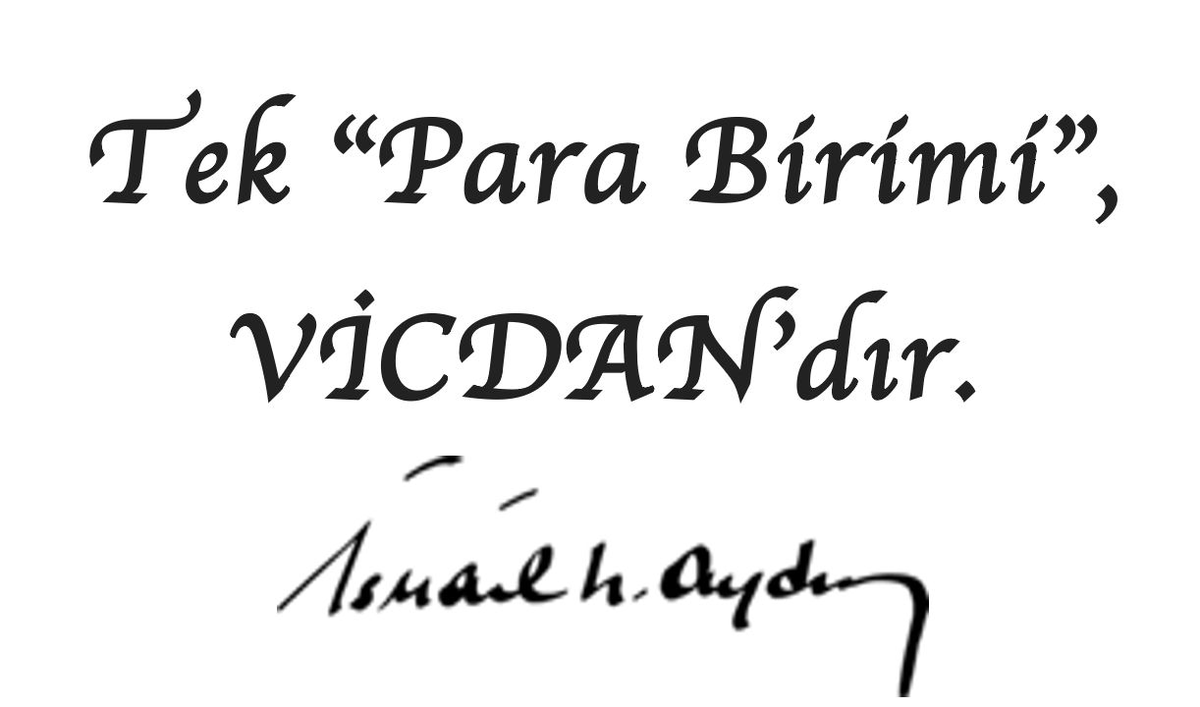 Tek “Para Birimi”,
VİCDAN’dır.
İsmail h. Aydın